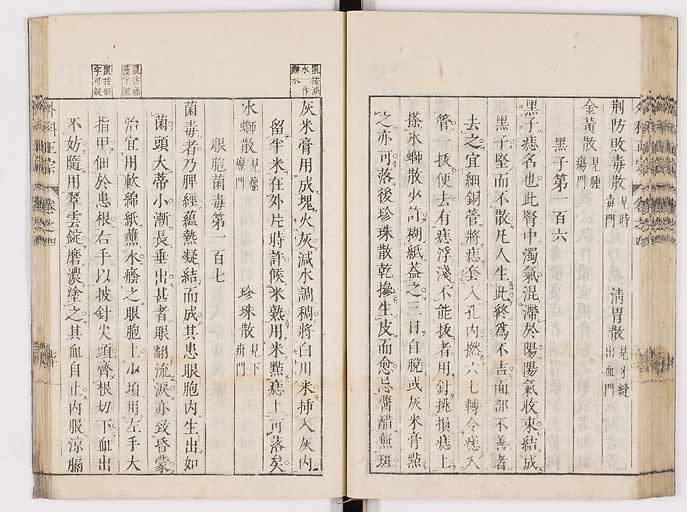 荆防敗毒散 見時毒門 清胃散 見牙縫出血門
金黃散 見腫瘍門
黑子第一百六
黑子痣名也此腎中濁氣混滯於陽陽氣收束結成
黑子堅而不散凡人生此終爲不吉面部不善者
去之宜細銅管將痣套入孔内撚六七轉令痣入
管一拔便去有痣浮淺不能拔者用針挑損痣上
搽水螄散少許糊紙蓋之三日自脫或灰米膏點
之亦可落後珍珠散乾摻生皮而愈忌醬醋無斑
灰米膏用成塊火灰滅水調稠將白川米揷入灰内
留半米在外片時許候米熟用米點痣上可落矣
冰螄散 見瘰癧門 珍珠散 見下疳門
眼胞菌毒第一百七
菌毒者乃脾經蘊熱凝結而成其患眼胞内生出如
菌頭大蒂小漸長垂出甚者眼翻流淚亦致昏蒙
治宜用軟綿紙蘸水瘞之眼胞上少項用左手大
指甲佃於患根右手以披針尖頭齊根切下血出
不妨隨用翠雲錠磨濃塗之其血自止内服涼膈
外科正宗 卷之四